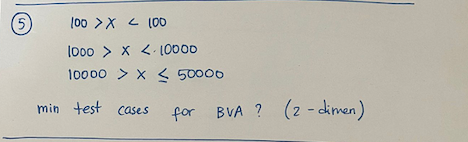 5 100 > X < 100
1000 > X < 10000
10000 > X ≤ 50000
min test cases for BVA ? (2-dimen)